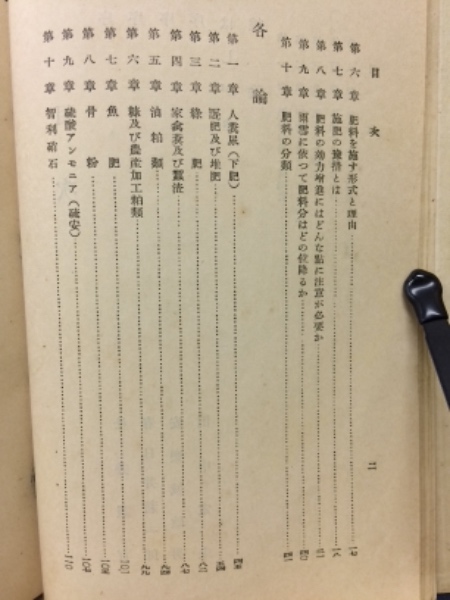 目次
二
第六章 肥料を施す形式と理由…一七
第七章 施肥の豫措とは…一八
第八章 肥料の効力増進にはどんな點に注意が必要か…二一
第九章 雨雪に依つて肥料分はどの位降るか…四〇
第十章 肥料の分類…四一
各論
第一章 人糞尿(下肥)…四五
第二章 厩肥及び堆肥…五四
第三章 緑肥…八二
第四章 家禽糞及び蠶沙…八七
第五章 油粕類…九四
第六章 糠及び農産加工粕類…九九
第七章 魚肥…一〇一
第八章 骨粉…一〇五
第九章 硫酸アンモニア(硫安)…一〇七
第十章 智利硝石…一一〇